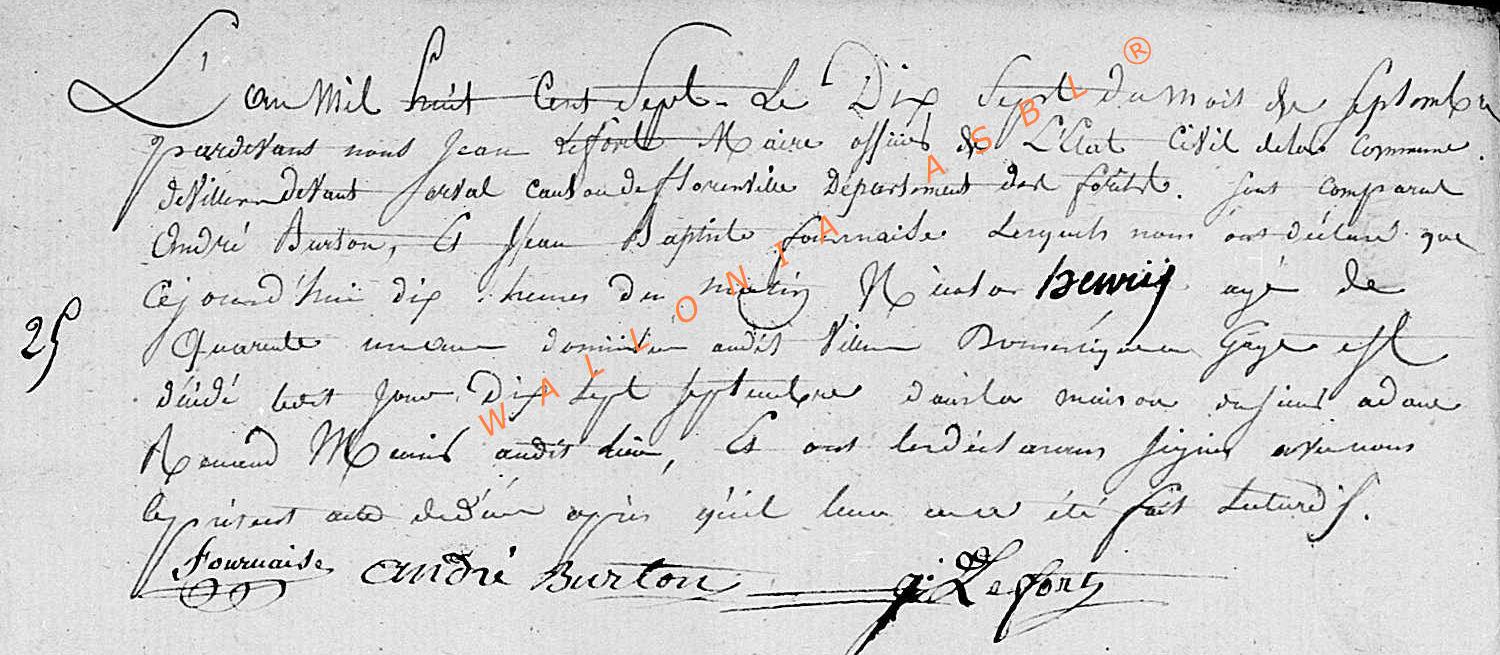 L'an Mil huit Cent Sept. Le Dix Sept du mois de Septembre
pardevant nous Jean Lefort Maire officier de L'Etat Civil dela Commune.
de Villers devant orval canton de florenville Departement des forêts. sont comparus
André Burton, Et Jean Baptiste fournaise Lesquels nous ont déclaré que
Cejourd'hui dix heures du matin Nicolas henrij agé de
Quarente domicilié audit Viller est
décédé ledit Jour Dix Sept Septembre dans la maison
Renaud audit lieu, Et ont les déclarans signés avec nous
le présent acte de décés après qu'il leur en a été fait Lecture
25
Fournaise André Burton j Lefort
WALLONIA ASBL ®